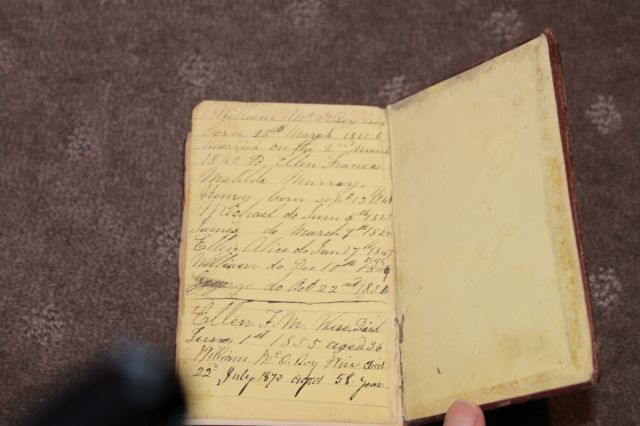 William Mc O.Boy Wise
born 16th March 1812
Married on the 2nd March
1840 To Ellen Frances
Matilda Murray.
Henry born sept 13th
Michael do June 6th 1843
James do March 7th 1845
Ellen Alice do Jan 27th 1847
William do Dec 10th 1848
George do Oct 22nd 1850
Ellen F. M. Wise Died
June 1st 1855 aged 36
William Mc O. Boy Wise died
22d July 1870 aged 58 years